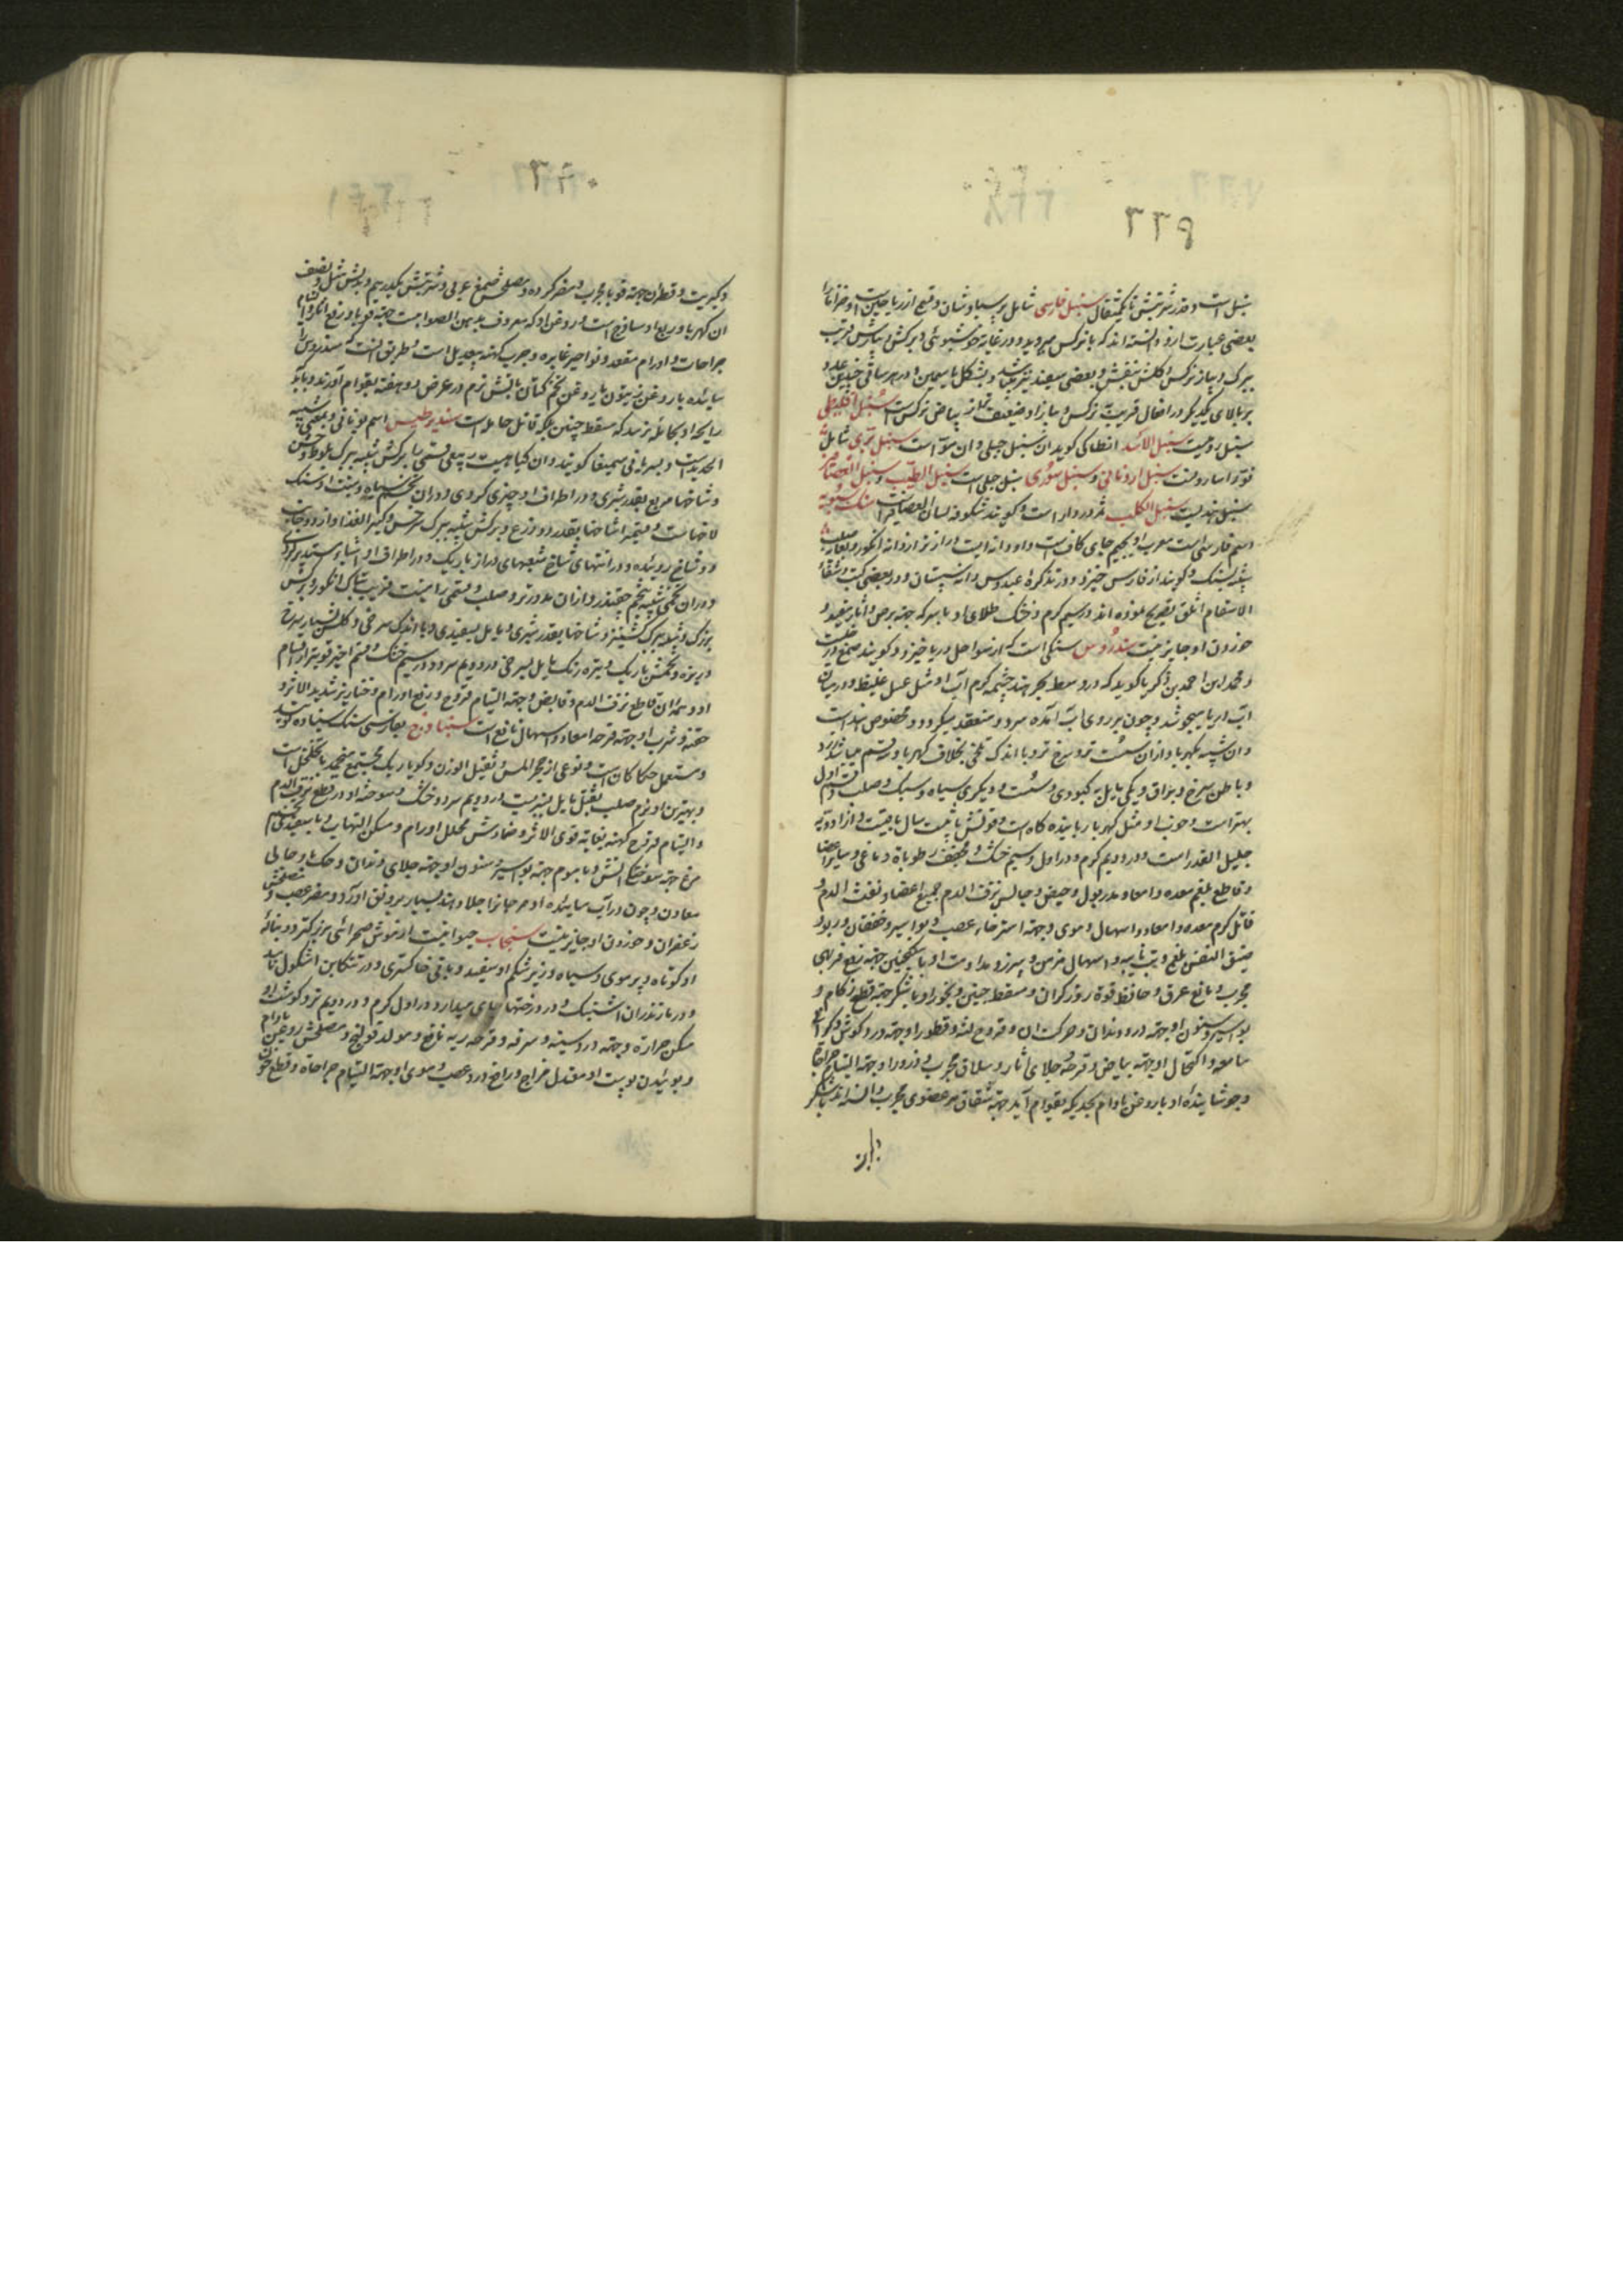 سنبل است و قدر شربتش تا یکمثقال سنبل فارسی شامل پرسیاوشان و قسمی از ریاحین است و خزانی را
بعضی عبارت ازو دانسته اند که با نرکس میروید و در غایة خوشبوئی و برکش و پیازش قریب
ببرک و پیاز نرکس و کلش بنفش و بعضی سفید نیز میباشد و بشکل یاسمین و در هر ساقی چندین عدد
بر بالای یکدیکر و در افعال قریب بنرکس و پیاز او ضعیف تر از پیاض نرکس است سنبل اقلیطی
سنبل رومیست سنبل الاسد انطاکی کوید ان سنبل جبلی و ان مو است سنبل بری شامل
فو و اسارونست سنبل اردنانی و سنبل سوری سنبل جبلی است سنبل الطیب و سنبل العصافیر
سنبل هندیست سنبل الکلب ثمر دردار است و کویند شکوفه لسان العصافیر است سنک سبویه
اسم فارسی است معرب او بجیم جای کاف است و او دانه ایست درازتر از دانه انکور و بغایت صلب
شبیه بسنک و کویند از فارس خیزد و در تذکرهٔ عبدوس دانه سپستان و در بعضی کتب و شفاء
الاسقام اثلق تصریح نموده اند در سیم کرم و خشک طلای او با سرکه جهة برص و اثار مفید و
خوردن او جایز نیست سندروس سنکی است که از سواحل دریا خیزد و کویند صمغ درختیست
و محمد ابن احمد بن ذکریا کوید که در وسط بحر هند چشمه کرم آب او مثل عسل غلیظ و در میان
آب دریا میجوشد و چون بر روی آب آمده سرد و منعقد میکردد و مخصوص هند است
و ان شبیه بکهربا و ازان سست تر و سرخ تر و با اندک تلخی بخلاف کهربا و دو قسم میباشد زرد
و باطن سرخ و براق و یکی مایل به کبودی و سست و دیکری سیاه و سبک و صلب و قسم اول
بهتر است و خوب او مثل کهربا رباینده کاه است و قوتش تا بیست سال باقیست و از ادویه
جلیل القدر است و در دویم کرم و در اول سیم خشک و مجفف رطوبات دماغی و سایر اعضا
و قاطع بلغم معده و امعاء و مدر بول و حیض و حابس نزف الدم جمیع اعضا و نفث الدم و
قاتل کرم معده و امعاء و اسهال دموی و جهة استرخاء عصب و بواسیر و خفقان و ربو و
ضیق النفس بلغمی و تب نایبه و اسهال مزمن و سپرز و مداومت او با سکنجبین جهة رفع فربهی
مجرب و مانع عرق و حافظ قوة روزکران و مسقط جنین و بخور او با شکر جهة قطع زکام و
بواسیر و سنون او جهة درد دندان و حرکت ان و قروح لثه و قطور او جهة درد کوش و کرانی
سامعه و اکتحال او جهة بیاض و قرحه و جلای اثار و سلاق مجرب و ذرور او جهة التیام جراحات
و جوشانیده او با روغن بادام بحدیکه بقوام آید جهة شقاق هر عضوی مجرب و السزاندن با شکر
و کبریت و قطران جهة قوبا مجرب و مضر کرده و مصلحش صمغ عربی و شربتش یکدرهم و بدلش مثل و نصف
ان کهربا و ربع او ساذج است و روغن او که معروف بدهن الصوابست جهة قوبا و رفع اکثر اقسام
جراحات و اورام مقعد و نواصیر غایره و جرب کهنه بیعدیل است و طریق انست که سندروس را
سائیده با روغن زیتون یا روغن تخم کتان باتش نرم در عرض دو هفته بقوام آورند و باید
رایحه او بحامله نرسد که مسقط جنین بلکه قاتل حامله است سندیرطیس اسم یونانی و بمعنی شبیه
الحدید است و بسریانی سمیفا کویند و ان کیاهیست ربیعی و قسمی را برکش شبیه ببرک بلوط و خشن
و شاخها مربع بقدر شبری و در اطراف او چیزی کروی و دران تخم سیاه و منبت او سنک
لاخهاست و قسمی را شاخها بقدر دو ذرع و برکش شبیه ببرک سرخس و کثیر العدد و از دو جانب
دو شاخ روئیده و در انتهای شاخ شعبهای دراز باریک و در اطراف او اشیاء مستدیر کروی
و دران تخمی شبیه بتخم چقندر و ازان مدورتر و صلب و قسمی را منبت قریب بتاک انکور و برکش
بزرک و شبیه ببرک کشنیز و شاخها بقدر شبری و مایل بسفیدی و با اندک سرخی و کلش بسیار سرخ
و ریزه و تخمش باریک و تیره رنک مایل بسرخی در دویم سرد و در سیم خشک و قسم اخیر قویتر از اقسام
او و همه ان قاطع نزف الدم و قابض و جهة التیام قروح و رفع اورام و خنازیر شدید الاثر و
حقنه و شرب او جهة قرحه امعاء و اسهال نافع است سنباذج بفارسی سنک سنباده کویند
و مستعمل حکاکان است و نوعی از حجر المس و ثقیل الوزن و کویا ریک مجتمع منجمد با تخلخل است
و بهترین او نرم صلب ثقیل مایل بتیرکیست در دویم سرد و خشک و سوخته او در قطع نزف الدم
و التیام قروح کهنه بغایة قوی الاثر و ضمادش محلل اورام و مسکن التهاب و با سفیده تخم
مرغ جهة سوختکی اتش و با موم جهة بواسیر و سنون او جهة جلای دندان و حکهٔ او جالی
معادن و چون در آب سائیده او مرجان را جلا دهند بسیار برونق آورد و مضر عصب و مصلحش
زعفران و خوردن او جایز نیست سنجاب حیوانیست از موش صحرائی بزرکتر و دنباله
او کوتاه و پر موی و سیاه و زیر شکم او سفید و باقی خاکستری و در تنکابن اشکول نامند
و در مازندران اشبنک و در درختها جای میدارد در اول کرم و در دویم تر و کوشت او
مسکن حرارة و جهة درد سینه و سرفه و قرحه ریه نافع و مولد قولنج و مصلحش روغن بادام
و پوشیدن پوست او معتدل مزاج و رافع درد عصب و موی او جهة التیام جراحات و قطع خون